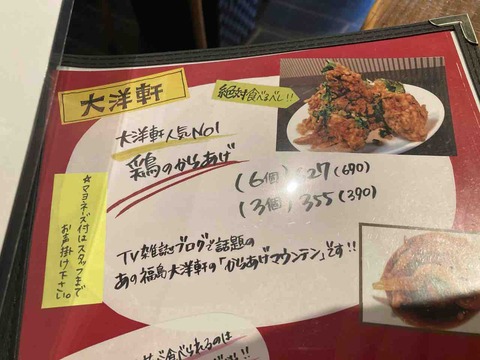 大洋軒
絶対食べるべし!!
大洋軒人気No1
鶏のからあげ
(6個) 627 (690)
(3個) 355 (390)
☆マヨネーズ付はスタッフまで
お声掛け下さい。
TV雑誌ブログで話題の
あの福島大洋軒の「からあげマウンテン」です!!
食べられるのは